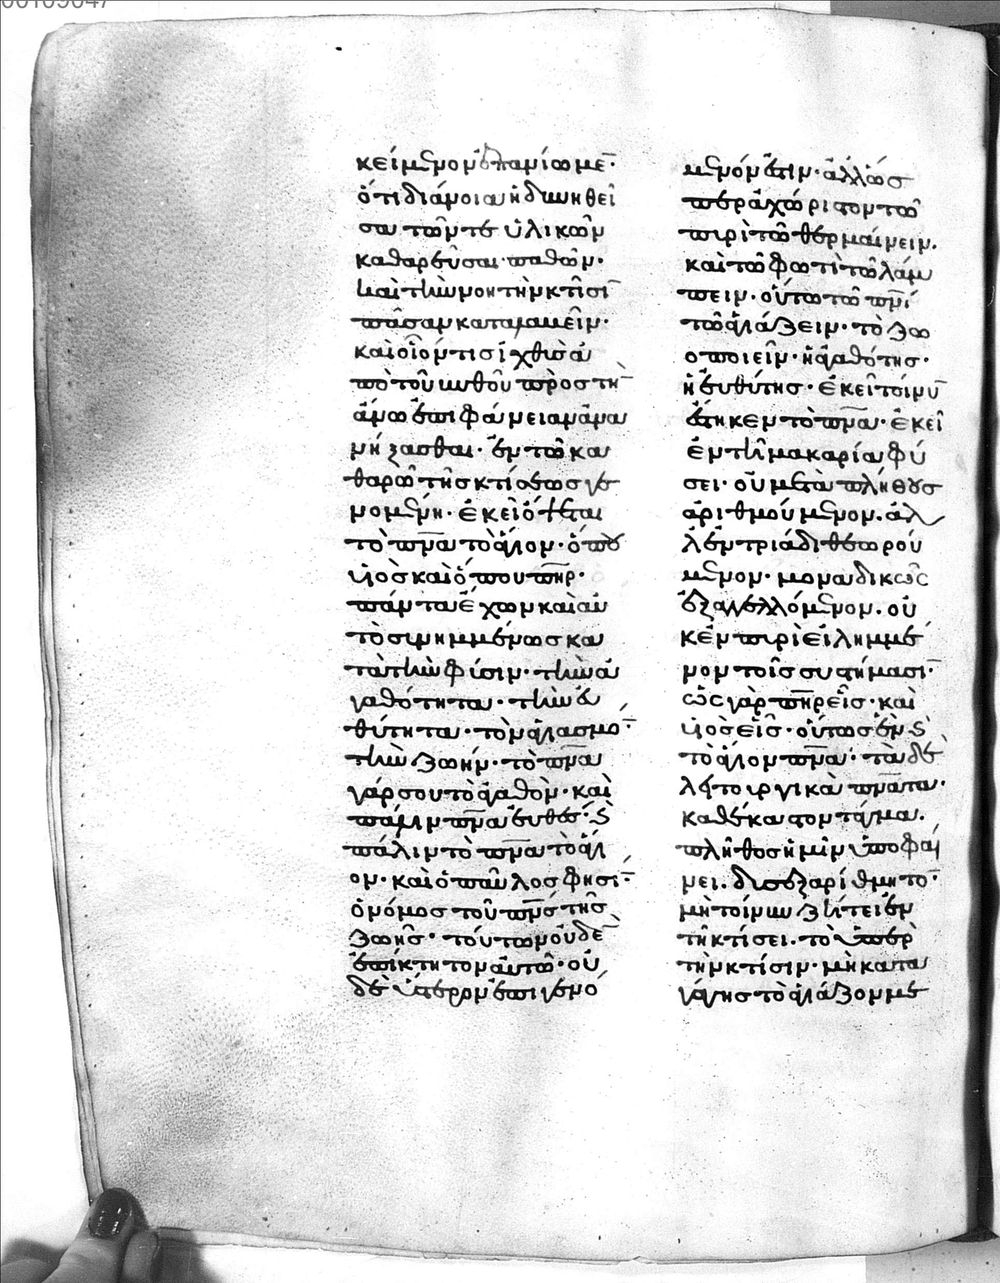 κείμενον ἐπανίωμε·
ὅτι διάνοια ἡ δυνηθεῖ
σα τῶν τε ὑλικῶν
καθαρεῦσαι παθῶν·
καὶ τὴν νοητὴν κτῖσϊ
πᾶσαν καταλαμεῖν·
καὶ οἷόν τις ἰχθῦς ἀ
πὸ τοῦ βυθοῦ πρὸς τὴ
ἄνω ἐπιφάνειαν ἀνα
νήξασθαι· ἐν τῶ κα
θαρῶ τῆς κτίσεως γε
νομένη· ἐκεῖ ὄψεται
τὸ πνᾶ τὸ ἅγιον· ὅπου
υἱὸς καὶ ὅπου πηρ·
πάντα ἔχων καὶ αὐ
τὸ συνημμένως κα
τὰ τὴν φύσιν· τὴν ἀ
γαθότητα· τὴν εὐ
θύτητα· τὸν ἁγιασμό·
τὴν ζωήν· τὸ πνᾶ
γάρ σου τὸ ἀγαθὸν· καὶ
πάλιν πνᾶ εὐθές· ϛ
πάλιν τὸ πνᾶ τὸ ἅγι
ον· καὶ ὁ παῦλος φησί·
ὁ νόμος τοῦ πνς τῆς
ζωῆς· τούτων οὐδὲ
ἐπίκτητον αὐτῶ· οὐ
δὲ ὕστερον ἐπιγενό
μενόν ἐστιν· ἀλλ' ὥσ
περ ἀχώριστον τῶ
πυρὶ τὸ θερμαίνειν.
καὶ τῶ φωτὶ τὸ λάμ
πειν· οὕτω τῶ πνϊ
τὸ ἁγιάζειν· τὸ ζω
οποιεῖν· ἡ ἀγαθότης·
ἡ εὐθύτης· ἐκεῖ τοίνυ
ἕστηκεν τὸ πνᾶ· ἐκεῖ
ἐν τῆ μακαρία φύ
σει· οὐ μετὰ πλήθους
ἀριθμούμενον. ἀλ
λ' ἐν τριάδι θεωρού
μενον· μοναδικῶς
ἐξαγγελλόμενον. οὐ
κ ἐν περιειλημμέ
νον τοῖς συστήμασι·
ὡς γὰρ πηρ εἷς· καὶ
υἱὸς εἷς· οὕτως ἐν ϛ
τὸ ἅγιον πνᾶ· τὰ δὲ
λειτουργικὰ πνᾶτα·
καθ' ἕκαστον τάγμα.
πλῆθος ἡμῖν ὑποφαί
νει. δυσεξαρίθμητο·
μὴ τοίνυν ζήτει ἐν
τῆ κτίσει. τὸ ὑπὲρ
τὴν κτίσιν· μὴ κατα
γάγης τὸ ἁγιάζον με